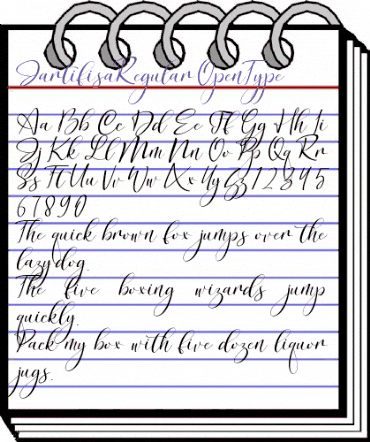 Jantifisa Regular OpenType
Aa Bb Cc Dd Ee Ff Gg Hh Ii
Jj Kk Ll Mm Nn Oo Pp Qq Rr
Ss Tt Uu Vv Ww Xx Yy Zz 1 2 3 4 5
6 7 8 9 0
The quick brown fox jumps over the
lazy dog.
The five boxing wizards jump
quickly.
Pack my box with five dozen liquor
jugs.